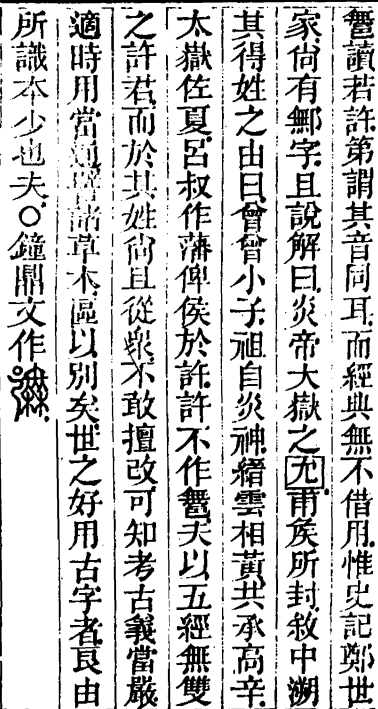 鄦讀若許第謂其音同耳而經典無不借用惟史記鄭世
家尚有鄦字且說解曰炎帝大嶽之允甫矦所封敘中溯
其得姓之由曰曾曾小子祖自炎神縉雲相黃共承高辛
太嶽佐夏呂叔作藩俾侯於許許不作鄦夫以五經無雙
之許君而於其姓尚且從衆不敢擅改可知考古義當嚴
適時用當通譬諸草木區以別矣世之好用古字者良由
所識本少也夫○鐘鼎文作